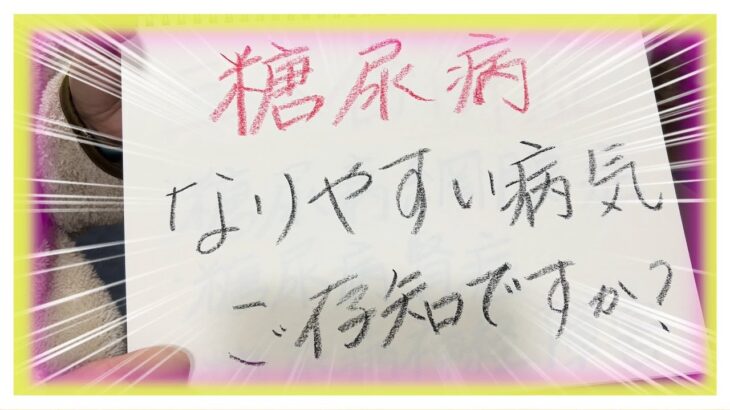 糖尿病
なりやすい病気
ご存知ですか？